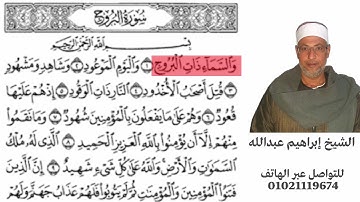 سُورَةُ الْبُرُوجِ
بِسْمِ اللَّهِ الرَّحْمَٰنِ الرَّحِيمِ
وَالسَّمَاءِ ذَاتِ الْبُرُوجِ ١ وَالْيَوْمِ الْمَوْعُودِ ٢ وَشَاهِدٍ وَمَشْهُودٍ
٣ قُتِلَ أَصْحَابُ الْأُخْدُودِ ٤ النَّارِ ذَاتِ الْوَقُودِ ٥ إِذْ هُمْ عَلَيْهَا
قُعُودٌ ٦ وَهُمْ عَلَىٰ مَا يَفْعَلُونَ بِالْمُؤْمِنِينَ شُهُودٌ ٧ وَمَا نَقَمُوا
مِنْهُمْ إِلَّا أَن يُؤْمِنُوا بِاللَّهِ الْعَزِيزِ الْحَمِيدِ ٨ الَّذِي لَهُ مُلْكُ
السَّمَاوَاتِ وَالْأَرْضِ وَاللَّهُ عَلَىٰ كُلِّ شَيْءٍ شَهِيدٌ ٩ إِنَّ الَّذِينَ
فَتَنُوا الْمُؤْمِنِينَ وَالْمُؤْمِنَاتِ ثُمَّ لَمْ يَتُوبُوا فَلَهُمْ عَذَابُ جَهَنَّمَ وَلَهُمْ
الشيخ إبراهيم عبدالله
للتواصل عبر الهاتف
01021119674